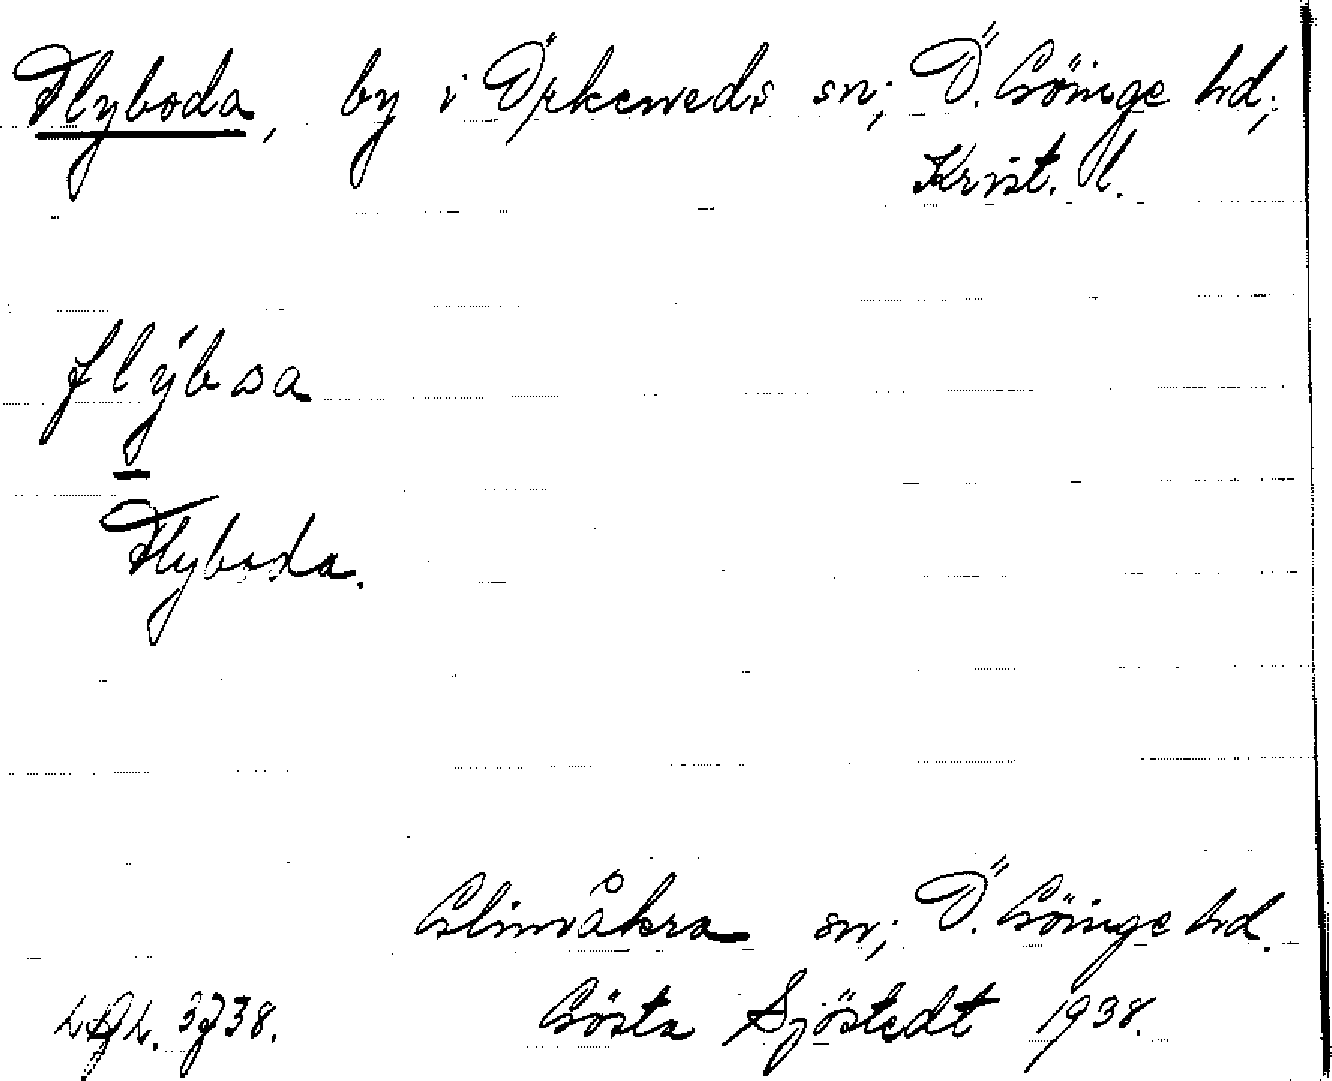 Flyboda, by i Örkeneds sn; Ö. Göinge hd;
Krist. l.
flýboa
Flyboda.
Glimåkra sn; Ö. Göinge hd.
3738. Gösta Sjöstedt 1938.